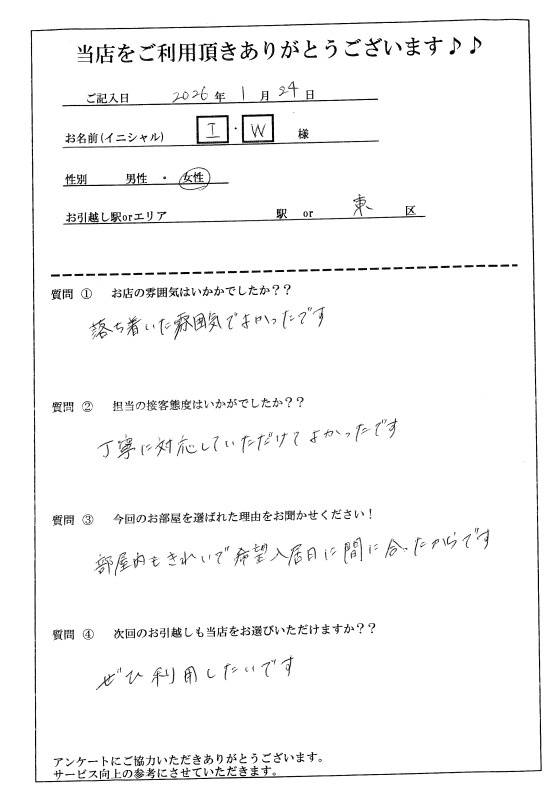 当店をご利用頂きありがとうございます♪♪
ご記入日 2026 年 1 月 24 日
お名前(イニシャル) I ・ W 様
性別 男性 ・ 女性
お引越し駅orエリア 駅 or 東 区
質問 ① お店の雰囲気はいかかでしたか??
落ち着いた雰囲気でよかったです
質問 ② 担当の接客態度はいかがでしたか??
丁寧に対応していただけてよかったです
質問 ③ 今回のお部屋を選ばれた理由をお聞かせください!
部屋内もきれいで希望入居日に間に合ったからです
質問 ④ 次回のお引越しも当店をお選びいただけますか??
ぜひ利用したいです
アンケートにご協力いただきありがとうございます。
サービス向上の参考にさせていただきます。